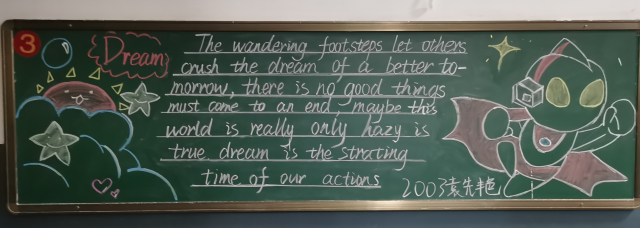 3
Dream
The wandering footsteps let others
crush the dream of a better to-
morrow, there is no good things
must come to an end, maybe this
world is really only hazy is
true dream is the stracting
time of our actions
2003袁先丰